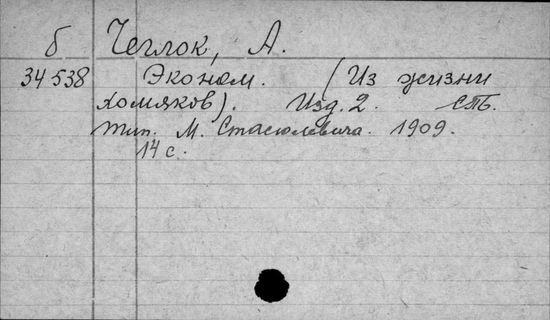 б Чеглок, А.
34 538 Эконом. (Из жизни
хомяков). Изд. 2. СПБ.
тип. М. Стасюлевича. 1909.
14 с.